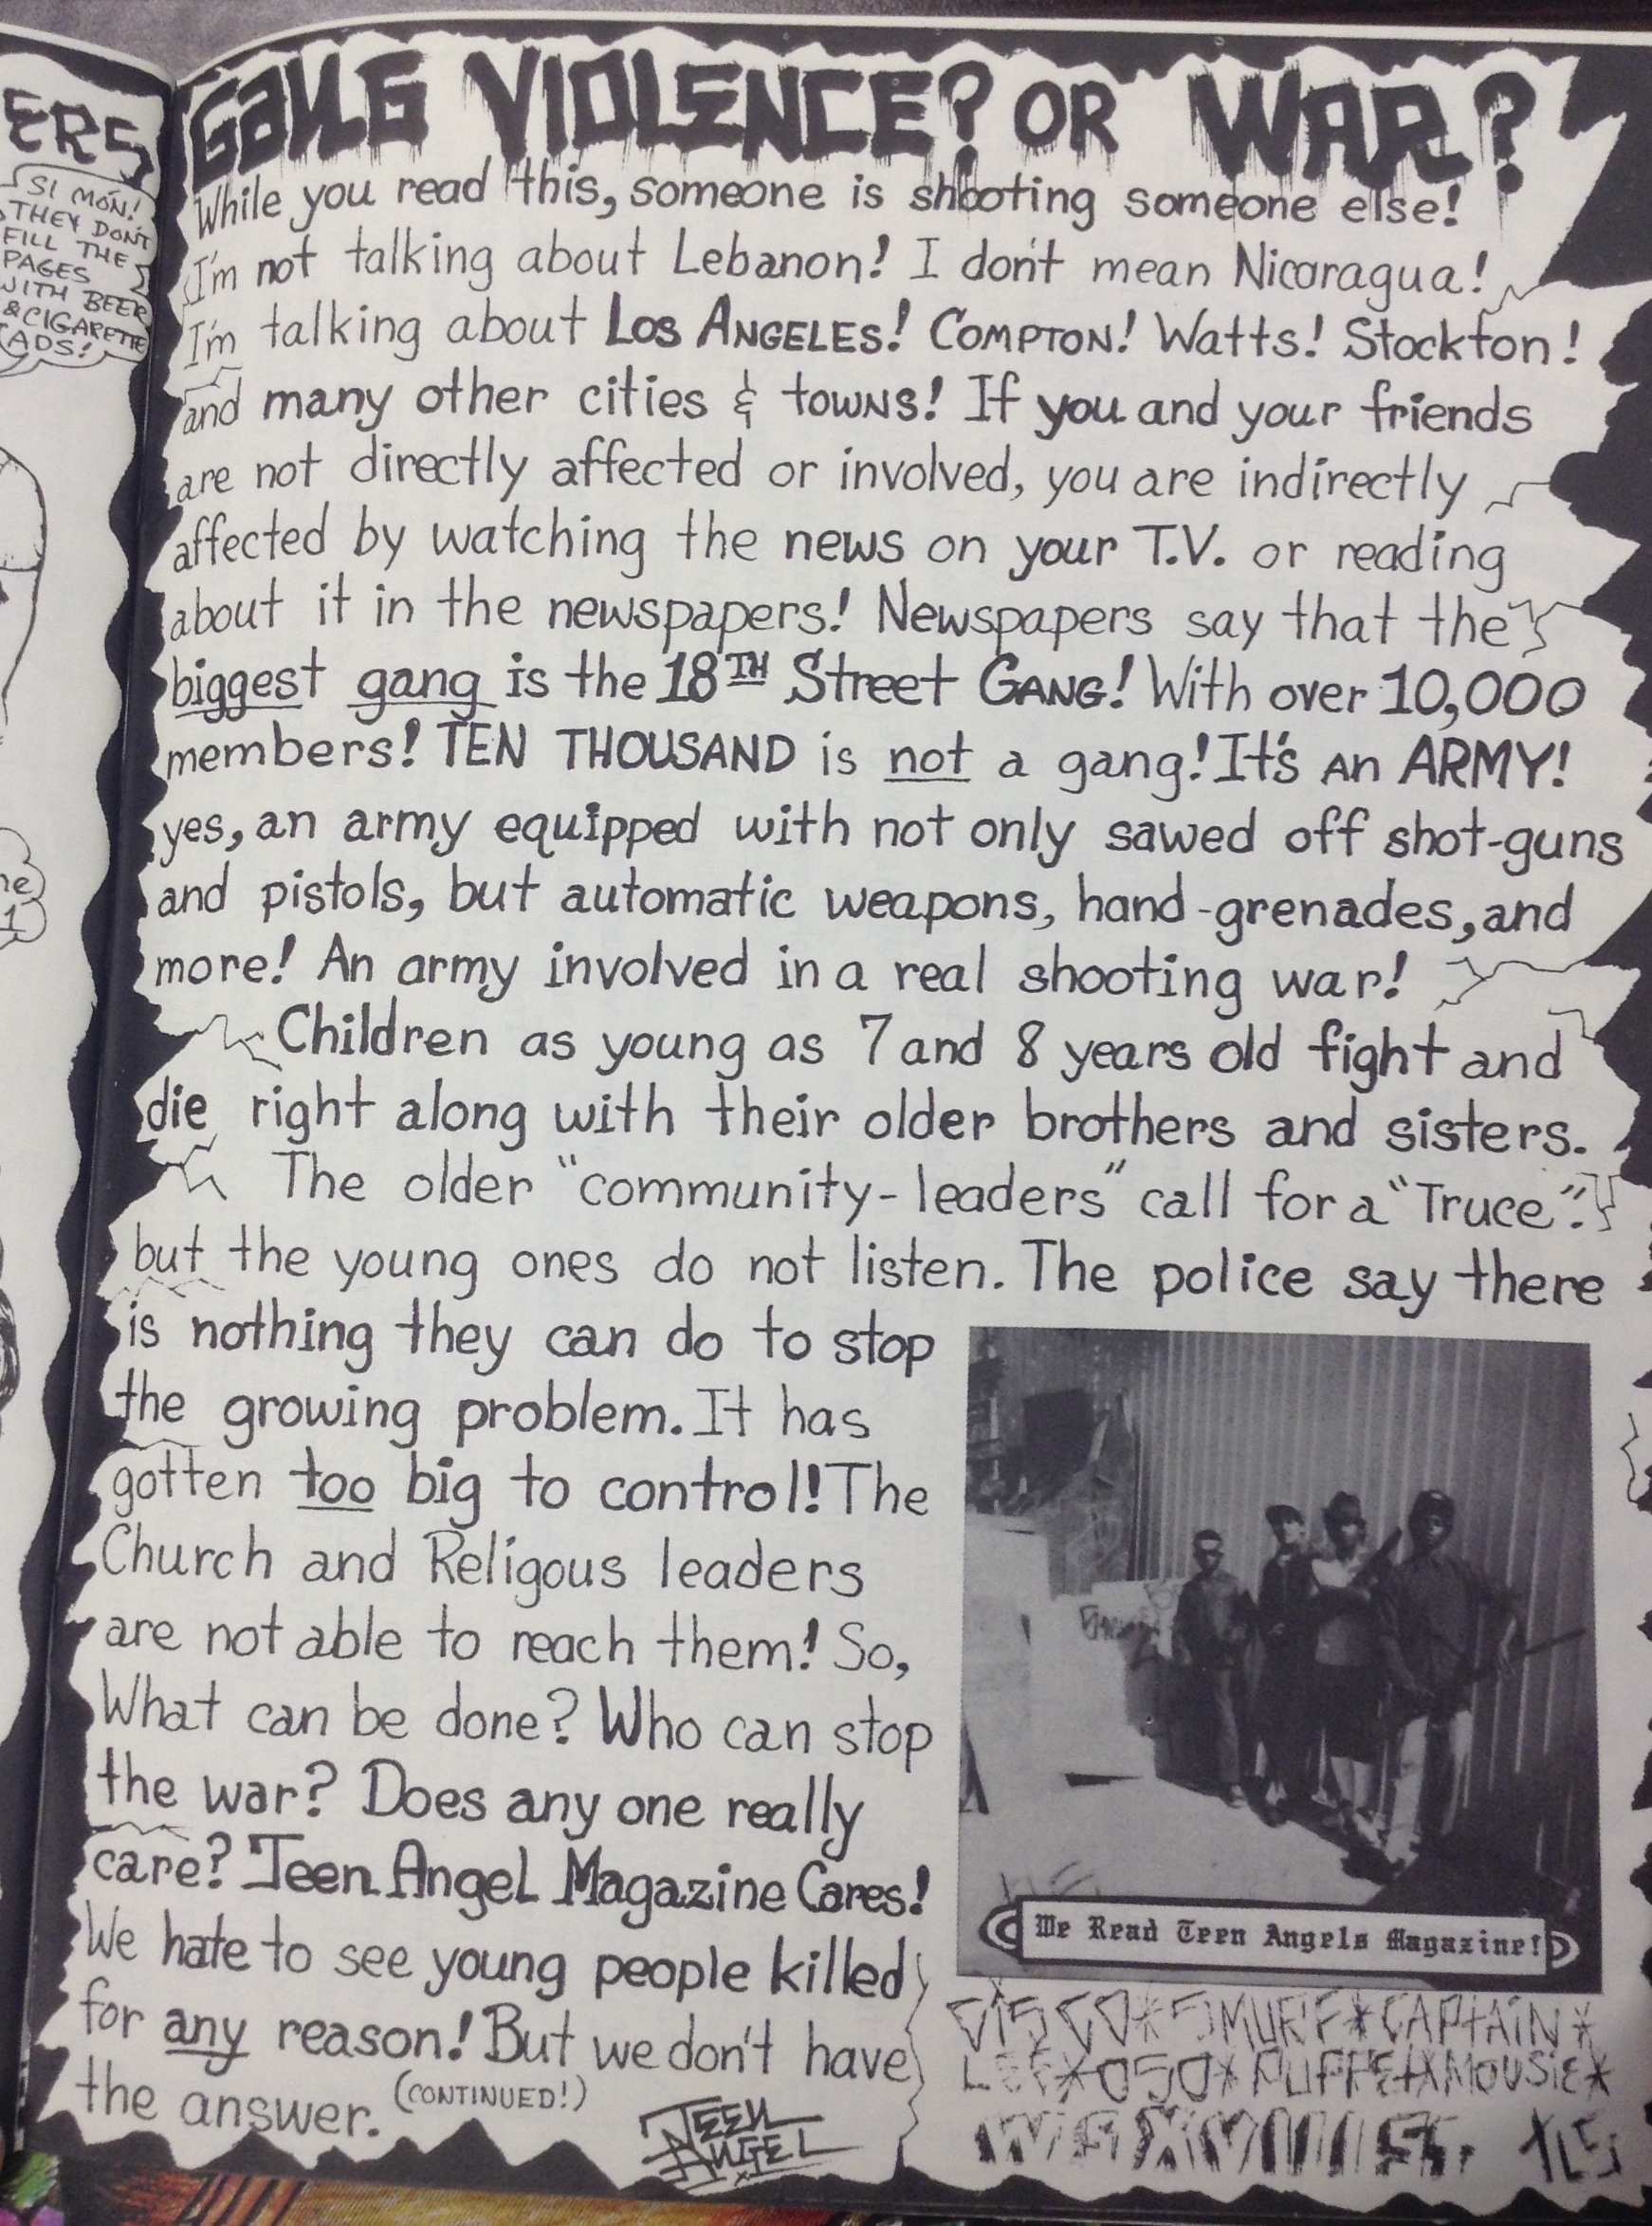 ERS
SI MÓN!
THEY DON'T
FILL THE
PAGES
WITH BEER
& CIGARETTE
ADS!
GANG VIOLENCE? OR WAR?
While you read this, someone is shooting someone else!
I'm not talking about Lebanon! I don't mean Nicaragua!
I'm talking about LOS ANGELES! COMPTON! Watts! Stockton!
and many other cities & TOWNS! If you and your friends
are not directly affected or involved, you are indirectly
affected by watching the news on your T.V. or reading
about it in the newspapers! Newspapers say that the
biggest gang is the 18TH Street GANG! With over 10,000
members! TEN THOUSAND is not a gang! It's AN ARMY!
yes, an army equipped with not only sawed off shot-guns
and pistols, but automatic weapons, hand-grenades, and
more! An army involved in a real shooting war!
Children as young as 7 and 8 years old fight and
die right along with their older brothers and sisters.
The older "community-leaders" call for a "Truce".
but the young ones do not listen. The police say there
is nothing they can do to stop
the growing problem. It has
gotten too big to control! The
Church and Religous leaders
are not able to reach them! So,
What can be done? Who can stop
the war? Does any one really
care? Teen Angel Magazine Cares!
We hate to see young people killed
for any reason! But we don't have
the answer. (CONTINUED!)
TEEN
ANGEL
We Read Teen Angels Magazine!
CISCO*SMURF*CAPTAIN*
LEE*OSO*PUPPET*MOUSIE*